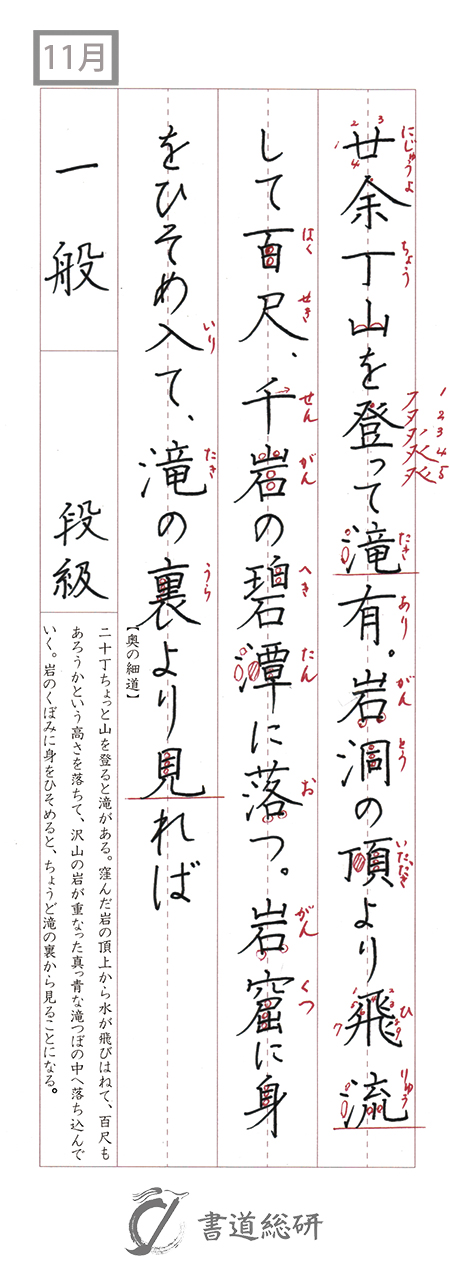 11月
廿余丁山を登って滝有。岩洞の頂より飛流
にじゅうよ ちょう たき あり がん とう いただき ひ りゅう
して百尺、千岩の碧潭に落つ。岩窟に身
はく せき せん がん へき たん お がん くつ
をひそめ入て、滝の裏より見れば
いり たき うら
一般
段級
【奥の細道】
二十丁ちょっと山を登ると滝がある。窪んだ岩の頂上から水が飛びはねて、百尺も
あろうかという高さを落ちて、沢山の岩が重なった真っ青な滝つぼの中へ落ち込んで
いく。岩のくぼみに身をひそめると、ちょうど滝の裏から見ることになる。
書道総研